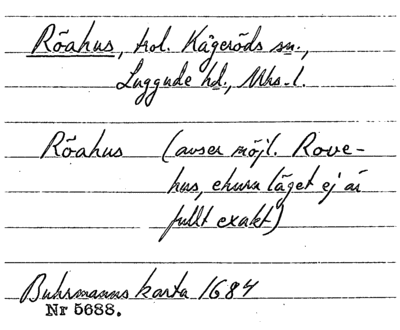 Röahus, tol. Kågeröds sn.,
Luggude hd., Mhs. l.
Röahus (avser möjl. Rove-
hus, ehuru läget ej är
fullt exakt)
Buhrmanns karta 1684
Nr 5688.